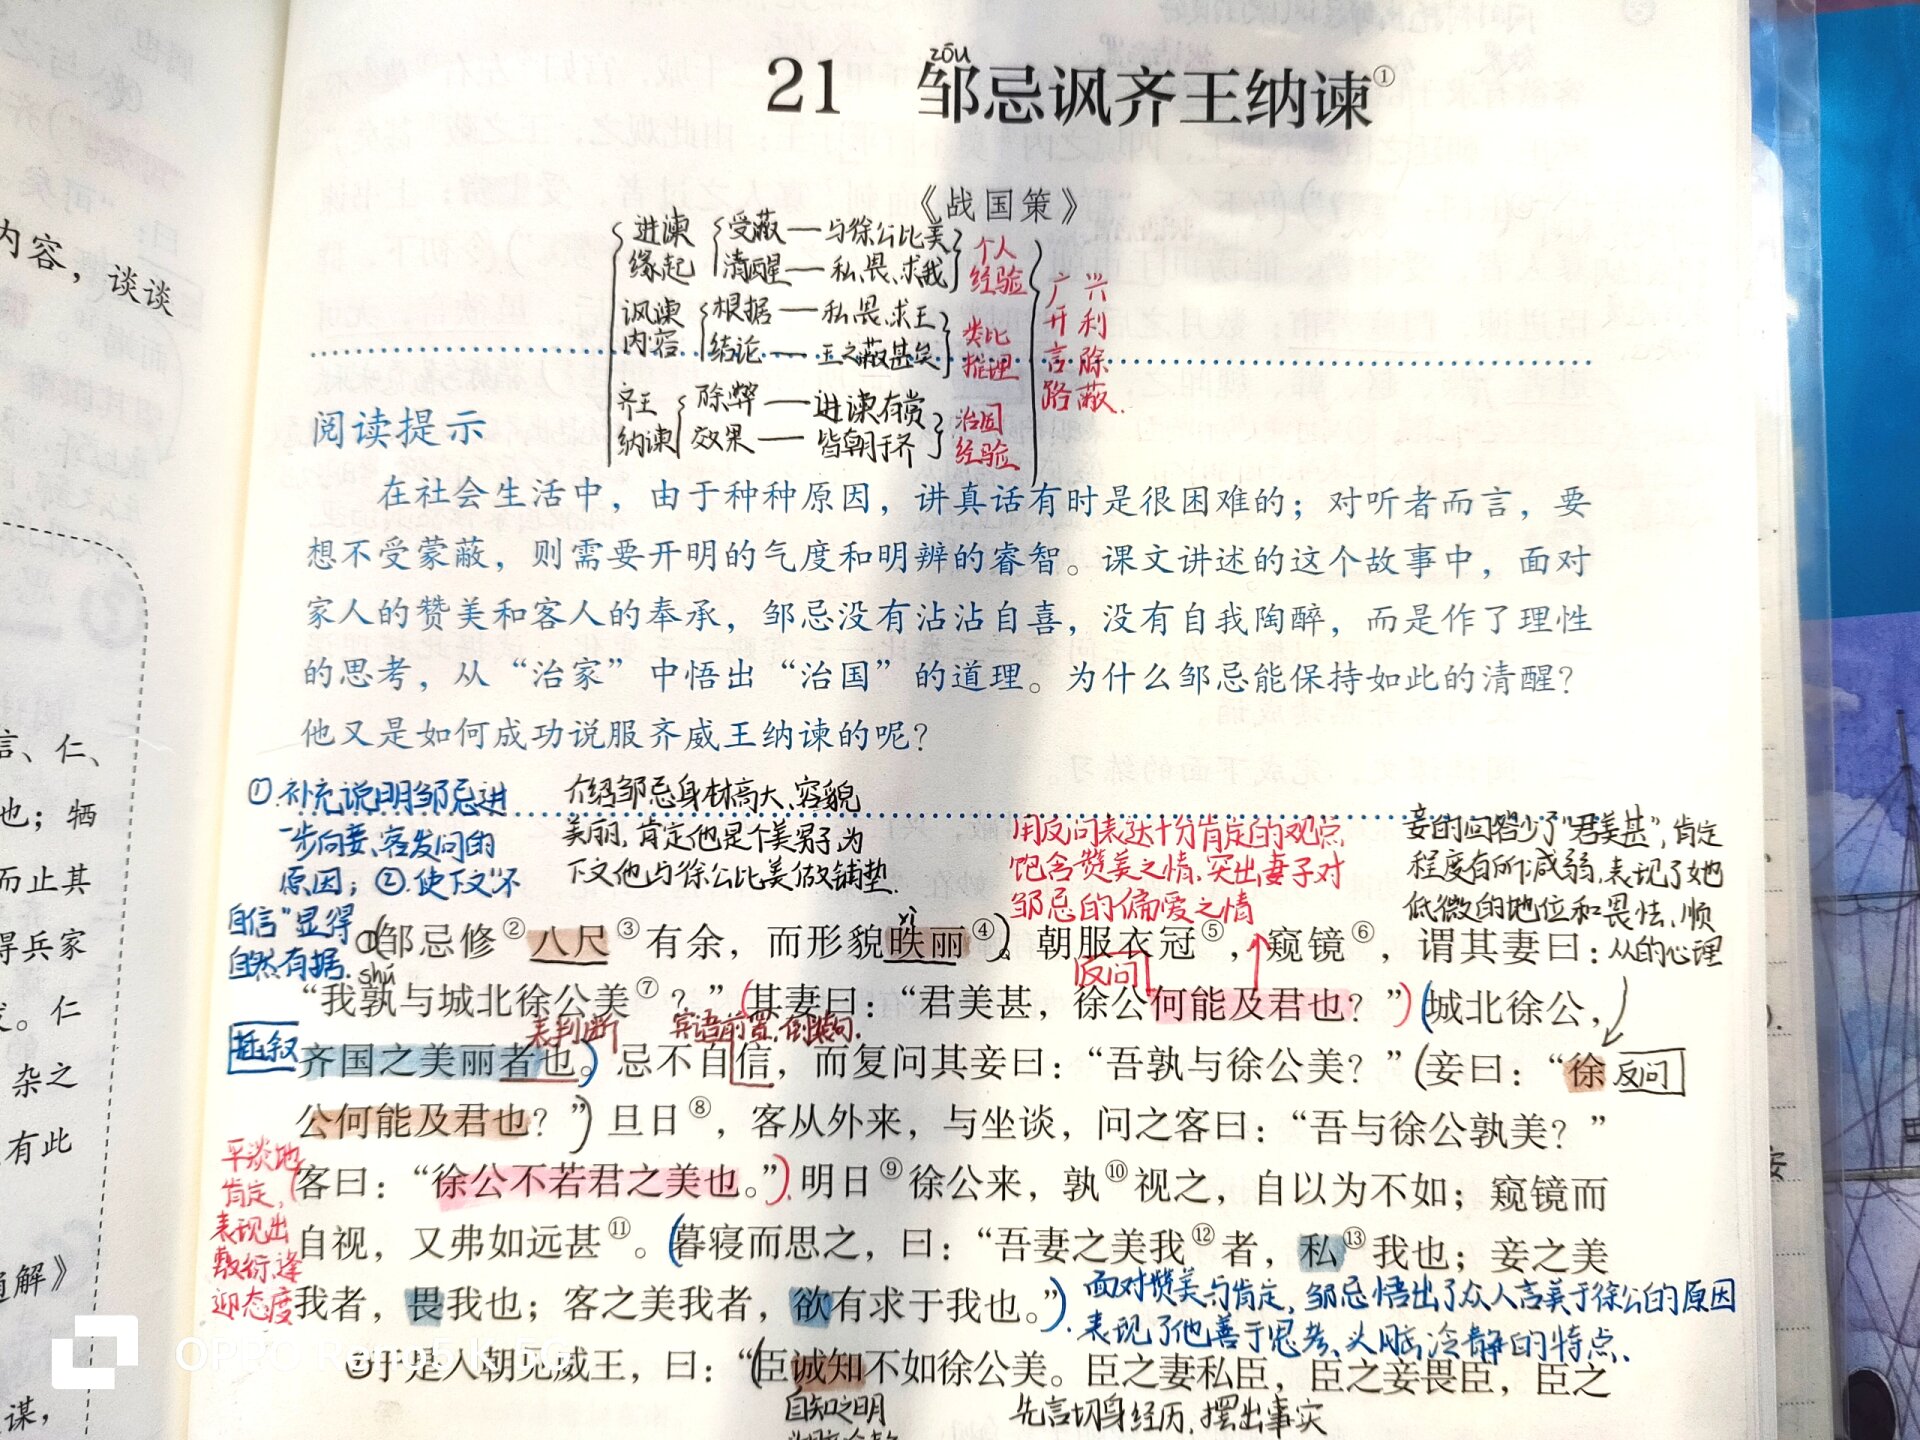 zōu
21 邹忌讽齐王纳谏①
《战国策》
进谏缘起 受蔽——与徐公比美 个人经验
清醒——私、畏、求我
讽谏内容 根据——私、畏、求王 类比推理
结论——王之蔽甚矣
齐王纳谏 除弊——进谏有赏 治国经验
效果——皆朝于齐
广开言路
兴利除蔽
阅读提示
在社会生活中，由于种种原因，讲真话有时是很困难的；对听者而言，要
想不受蒙蔽，则需要开明的气度和明辨的睿智。课文讲述的这个故事中，面对
家人的赞美和客人的奉承，邹忌没有沾沾自喜，没有自我陶醉，而是作了理性
的思考，从“治家”中悟出“治国”的道理。为什么邹忌能保持如此的清醒？
他又是如何成功说服齐威王纳谏的呢？
①.补充说明邹忌进
一步向妾、客发问的
原因；②.使下文“不
自信”显得
自然有据.
介绍邹忌身材高大、容貌
美丽，肯定他是个美男子，为
下文他与徐公比美做铺垫.
用反问表达十分肯定的观点
饱含赞美之情，突出妻子对
邹忌的偏爱之情
妾的回答少了“君美甚”，肯定
程度有所减弱，表现了她
低微的地位和畏怯、顺
从的心理
邹忌修②八尺③有余，而形貌昳丽④。朝服衣冠⑤，窥镜⑥，谓其妻曰：
yì
shú
反问
“我孰与城北徐公美⑦？”其妻曰：“君美甚，徐公何能及君也？”城北徐公，
表判断 宾语前置，倒装句.
插叙
齐国之美丽者也。忌不自信，而复问其妾曰：“吾孰与徐公美？”妾曰：“徐
反问
公何能及君也？”旦日⑧，客从外来，与坐谈，问之客曰：“吾与徐公孰美？”
客曰：“徐公不若君之美也。”明日⑨徐公来，孰⑩视之，自以为不如；窥镜而
自视，又弗如远甚⑪。暮寝而思之，曰：“吾妻之美我⑫者，私⑬我也；妾之美
我者，畏我也；客之美我者，欲有求于我也。”
平淡地
肯定，
表现出
敷衍、逢
迎态度
面对赞美与肯定，邹忌悟出了众人言美于徐公的原因
表现了他善于思考、头脑冷静的特点.
于是入朝见威王，曰：“臣诚知不如徐公美。臣之妻私臣，臣之妾畏臣，臣之
自知之明
先言切身经历，摆出事实
内容，谈谈
言、仁、
也；牺
而止其
得兵家
仁
杂之
有此
通解》
谋，
OPPO Reno5 K 5G